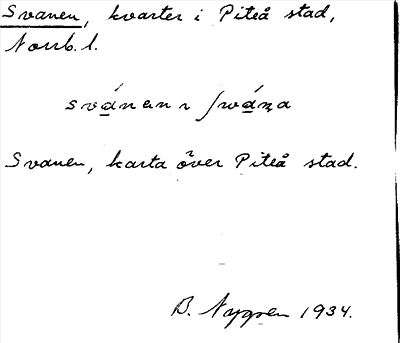 Svanen, kvarter i Piteå stad,
Norrb. l.
Svanen, karta över Piteå stad.
B. Nygren 1934.